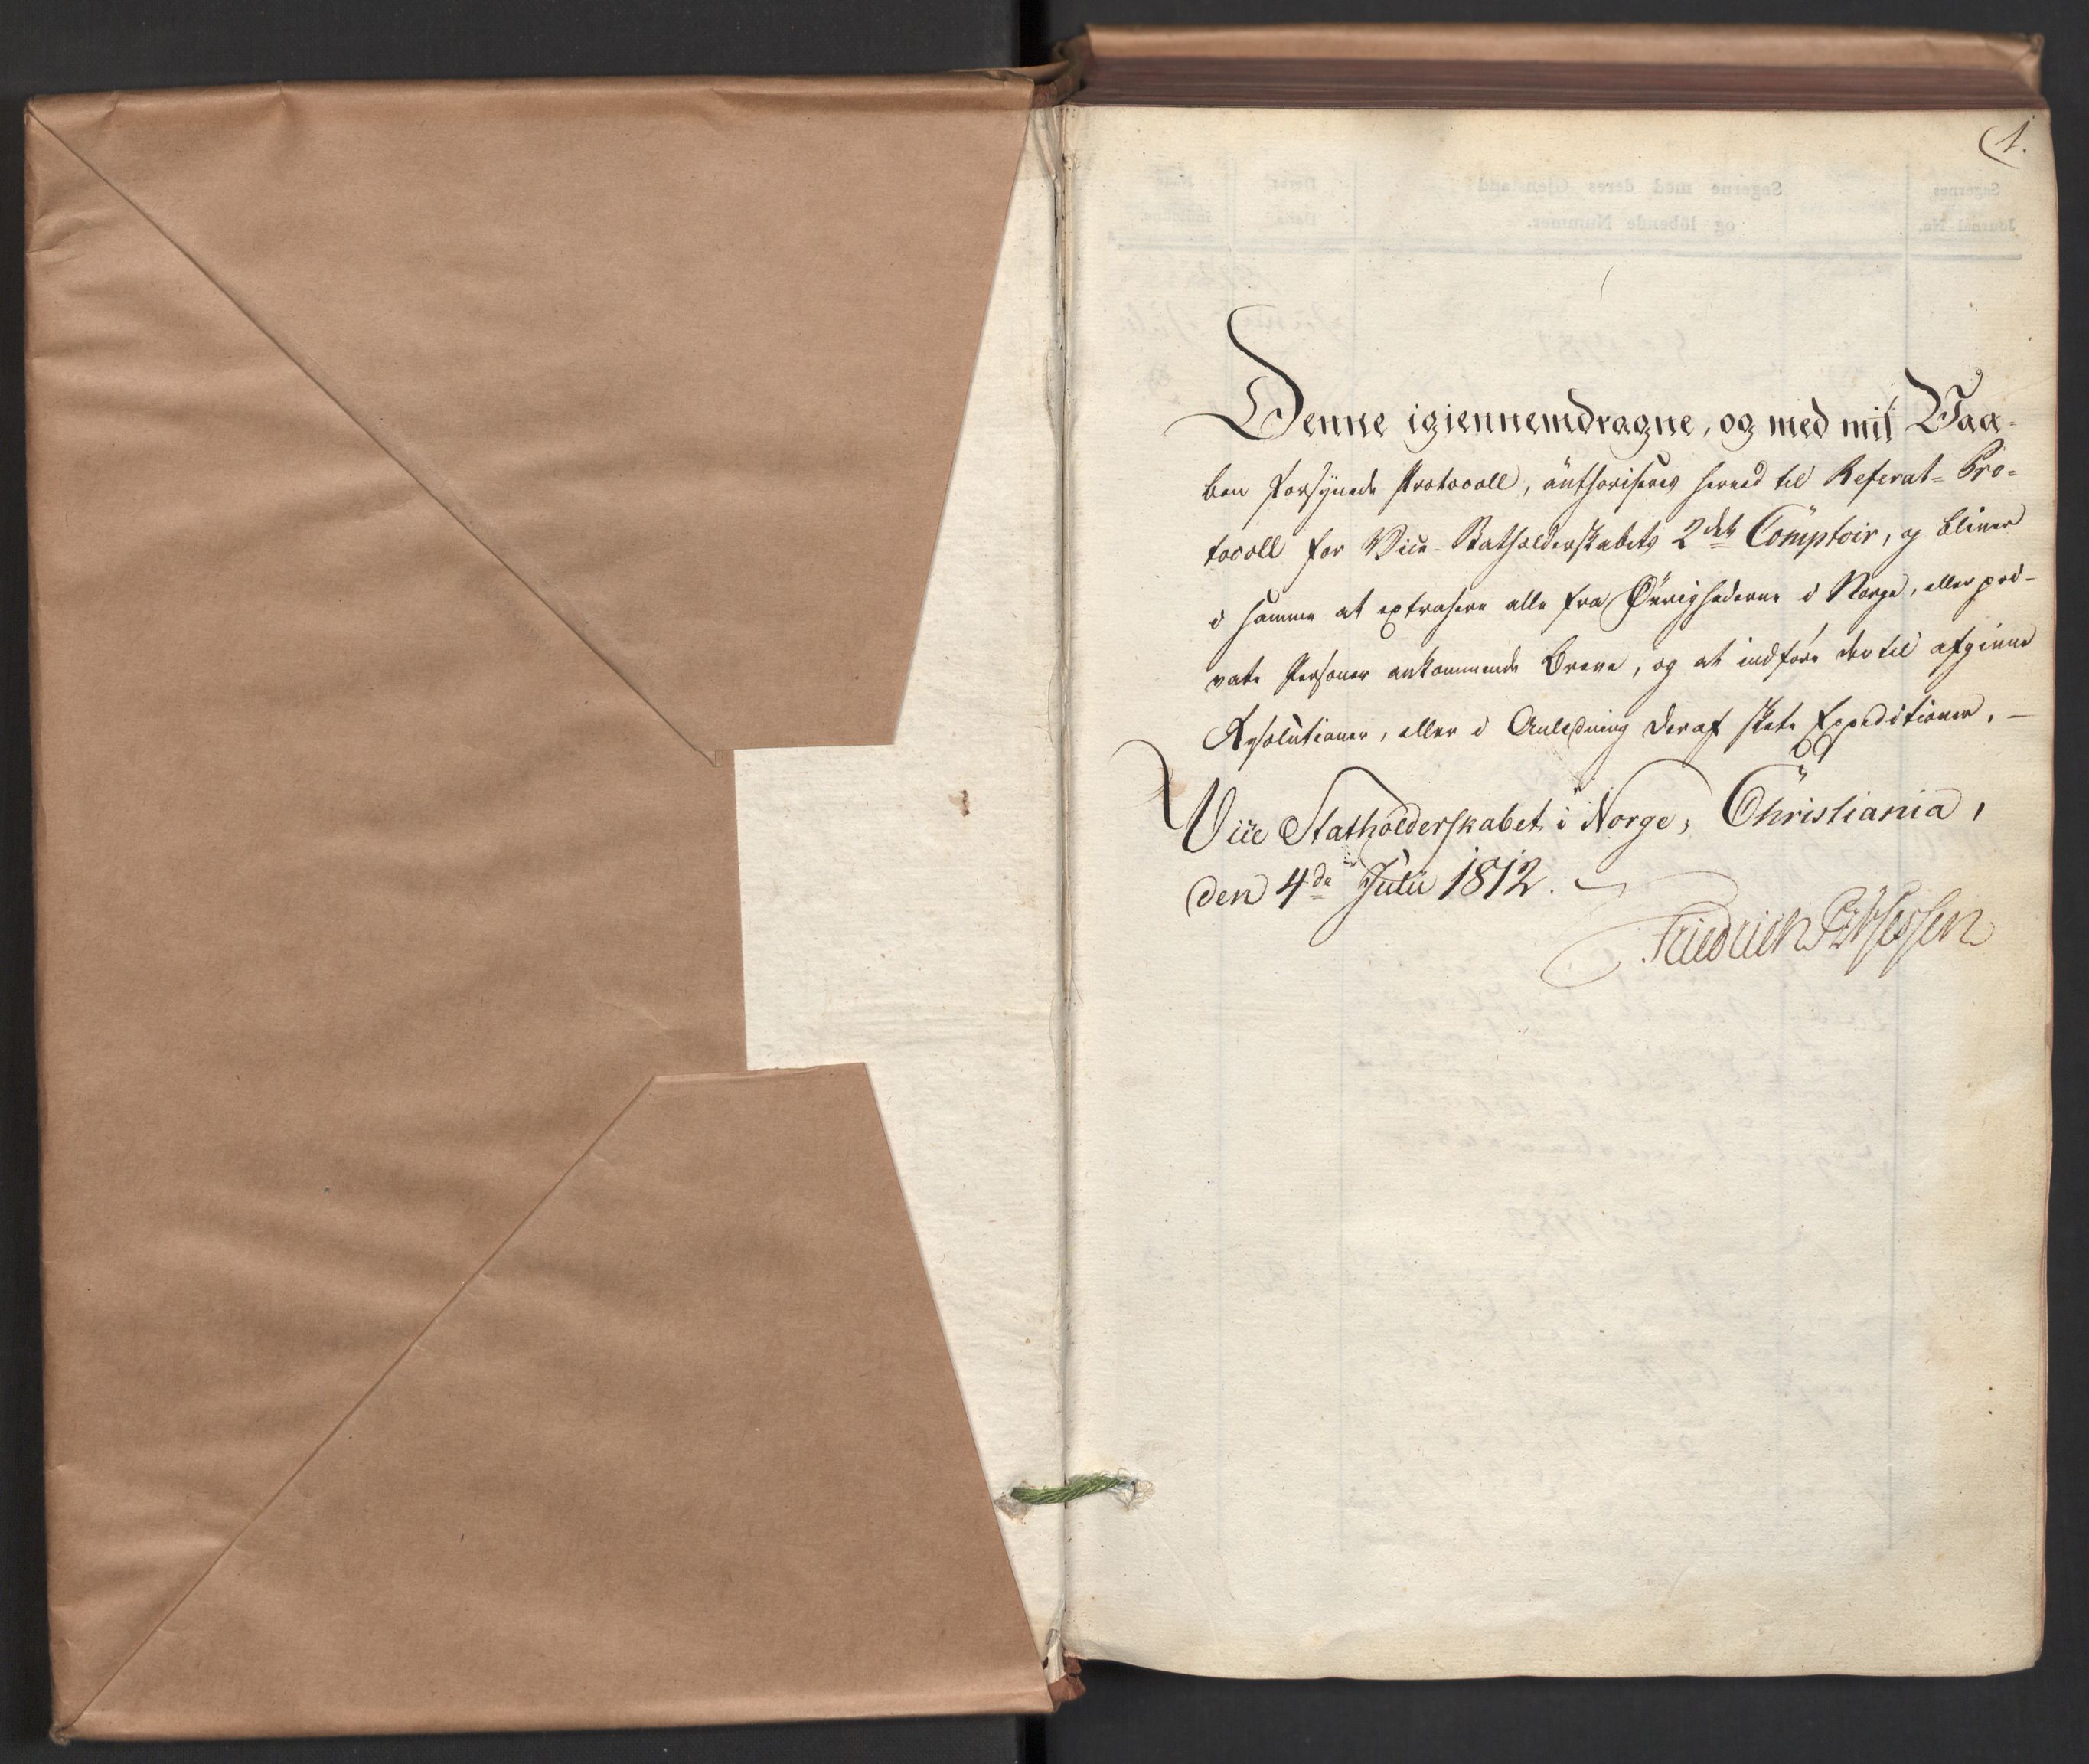 1.
Denne igiennemdragne, og med mit Vaa-
ben forsynede Protocoll, authoriseres herved til Referat-Pro-
tocoll for Vice-Statholderskabets 2det Comptoir, og bliver
i samme at extrahere alle fra Øvrighederne i Norge, eller pri-
vate Personer ankommende Breve, og at indføre dertil afgivne
Resolutioner, eller i Anledning deraf skete Expeditioner. —
Vice Statholderskabet i Norge, Christiania,
den 4de Julii 1812.
Friedrich PzHessen
Sagernes
Journal No.
Sagerne med deres Gjenstand
og löbende Nummer.